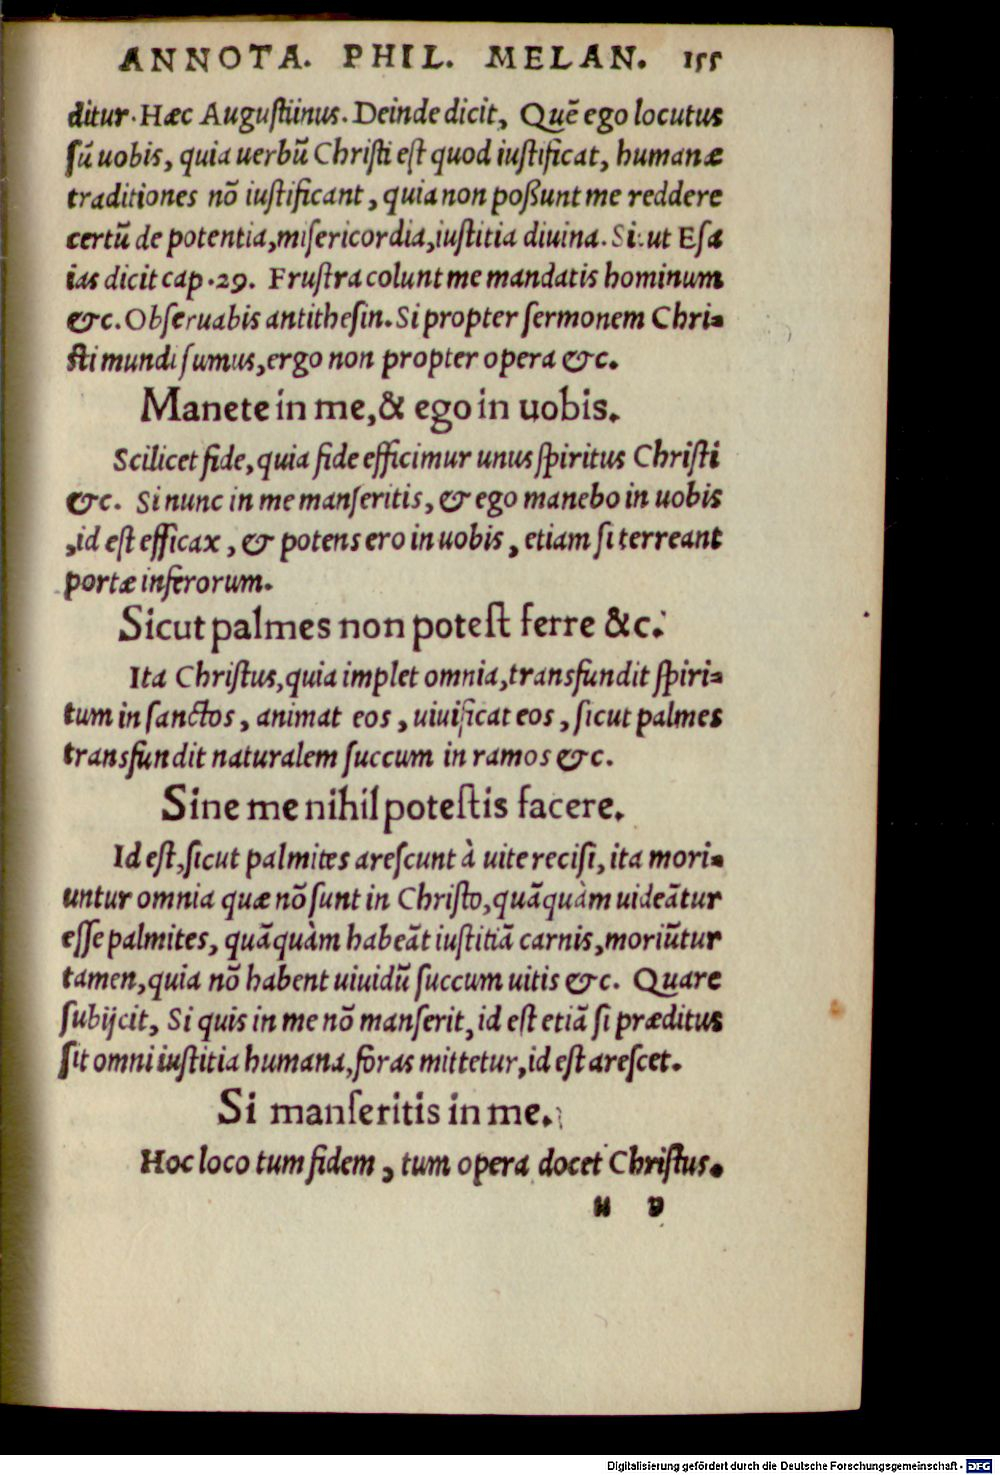 ANNOTA. PHIL. MELAN. 155
ditur. Hæc Auguſtiinus. Deinde dicit, Quē ego locutus
ſū uobis, quia uerbū Chriſti eſt quod iuſtificat, humanæ
traditiones nō iuſtificant, quia non poßunt me reddere
certū de potentia, miſericordia, iuſtitia diuina. Sicut Eſa
ias dicit cap. 29. Fruſtra colunt me mandatis hominum
&c. Obſeruabis antitheſin. Si propter ſermonem Chri⸗
ſti mundi ſumus, ergo non propter opera &c.
Manete in me, & ego in uobis.
Scilicet fide, quia fide efficimur unus ſpiritus Chriſti
&c. Si nunc in me manſeritis, & ego manebo in uobis
, id eſt efficax, & potens ero in uobis, etiam ſi terreant
portæ inferorum.
Sicut palmes non poteſt ferre &c.
Ita Chriſtus, quia implet omnia, transfundit ſpiri⸗
tum in ſanctos, animat eos, uiuificat eos, ſicut palmes
transfundit naturalem ſuccum in ramos &c.
Sine me nihil poteſtis facere.
Id eſt, ſicut palmites areſcunt à uite reciſi, ita mori⸗
untur omnia quæ nō ſunt in Chriſto, quāquàm uideātur
eſſe palmites, quāquàm habeāt iuſtitiā carnis, moriūtur
tamen, quia nō habent uiuidū ſuccum uitis &c. Quare
ſubijcit, Si quis in me nō manſerit, id eſt etiā ſi præditus
ſit omni iuſtitia humana, foras mittetur, id eſt areſcet.
Si manſeritis in me.
Hoc loco tum fidem, tum opera docet Chriſtus.
u v
Digitalisierung gefördert durch die Deutsche Forschungsgemeinschaft - DFG